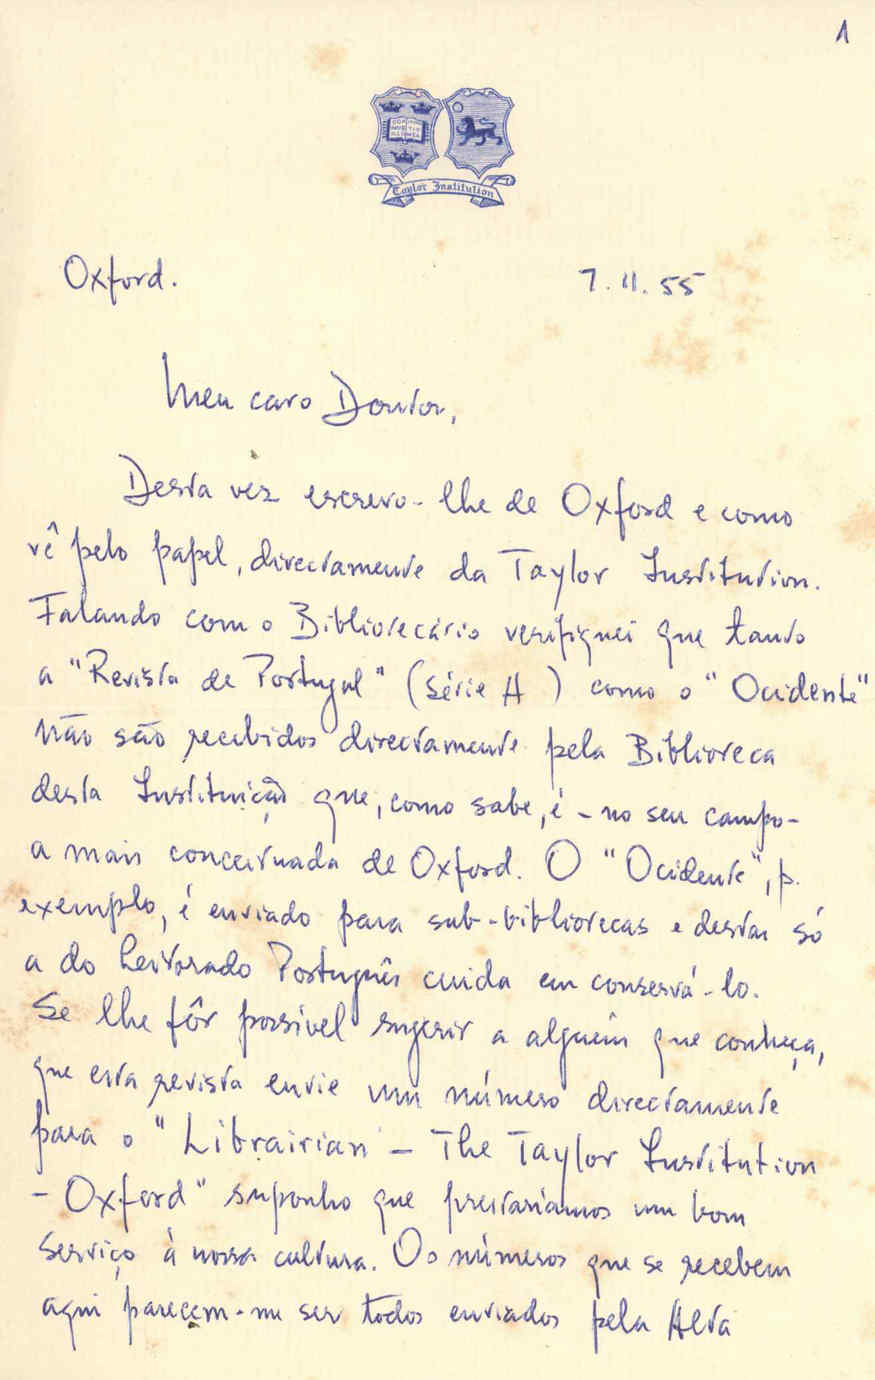 1
Taylor Institution
Oxford.
7.11.55
Meu caro Doutor,
Desta vez escrevo-lhe de Oxford e como
vê pelo papel, directamente da Taylor Institution.
Falando com o Bibliotecário verifiquei que tanto
a "Revista de Portugal" (Série A) como o "Ocidente"
não são recebidos directamente pela Biblioteca
desta Instituição que, como sabe, é - no seu campo -
a mais conceituada de Oxford. O "Ocidente", p.
exemplo, é enviado para sub-bibliotecas e destas só
a do Leitorado Português cuida em conservá-lo.
Se lhe fôr possível sugerir a alguém que conheça,
que esta revista envie um número directamente
para o "Librairian - The Taylor Institution
- Oxford" suponho que prestaríamos um bom
serviço à nossa cultura. Os números que se recebem
aqui parecem-me ser todos enviados pela Alta